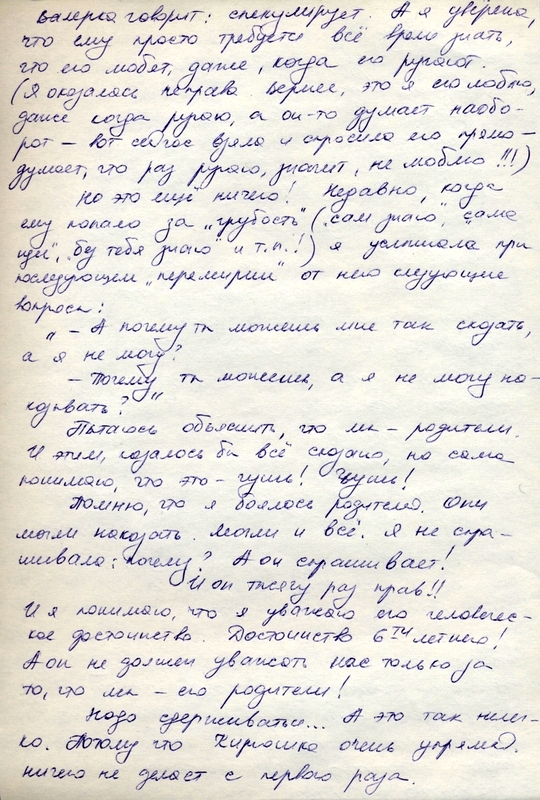 Валерка говорит: спекулирует. А я уверена,
что ему просто требуется всё время знать,
что его любят, даже, когда его ругают.
(Я оказалась неправа вернее, это я его люблю,
даже когда ругаю, а он-то думает наобо-
рот – вот сейчас взяла и спросила его прямо –
думает, что раз ругаю, значит, не люблю!!!)
Но это ещё ничего! Недавно, когда
ему попало за „грубость" („сам знаю", „сама
иди", „без тебя знаю" и т.п.!) я услышала при
последующем „перемирии" от него следующие
вопросы:
„– А почему ты можешь мне так сказать,
а я не могу?
– Почему ты можешь, а я не могу на-
казывать?"
Пытаюсь объяснить, что мы – родители.
И этим, казалось бы всё сказано, но сама
понимаю, что это – чушь! Чушь!
Помню, что я боялась родителей. Они
могли наказать. Могли и всё. Я не спра-
шивала: почему? А он спрашивает!
И он тысячу раз прав!!
И я понимаю, что я уважаю его человечес-
кое достоинство. Достоинство 6ти летнего!
А он не должен уважать нас только за
то, что мы – его родители!
Надо сдерживаться... А это так нелег-
ко. Потому что Кирюшка очень упрямый.
ничего не делает с первого раза.